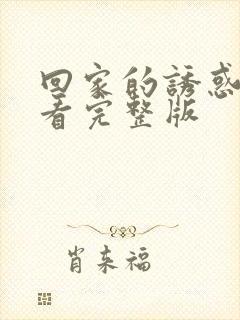 回家的誘惑
看完整版
肖来福